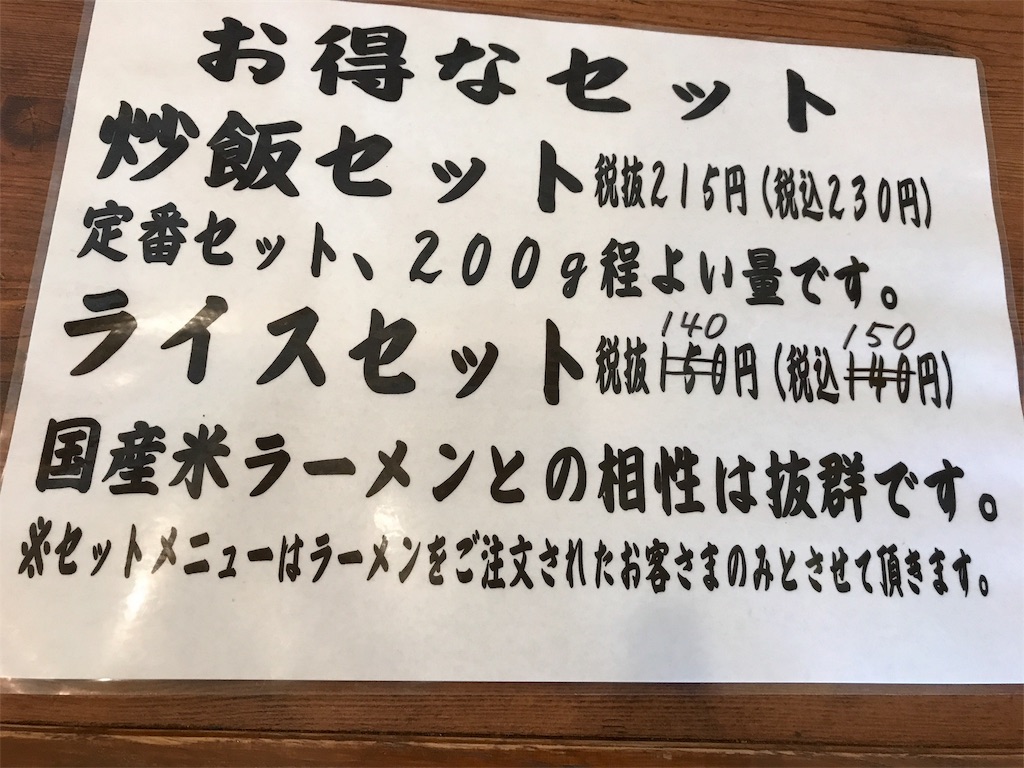 お得なセット
炒飯セット税抜215円(税込230円)
定番セット、200g程よい量です。
140 150
ライスセット税抜150円(税込140円)
国産米ラーメンとの相性は抜群です。
※セットメニューはラーメンをご注文されたお客さまのみとさせて頂きます。